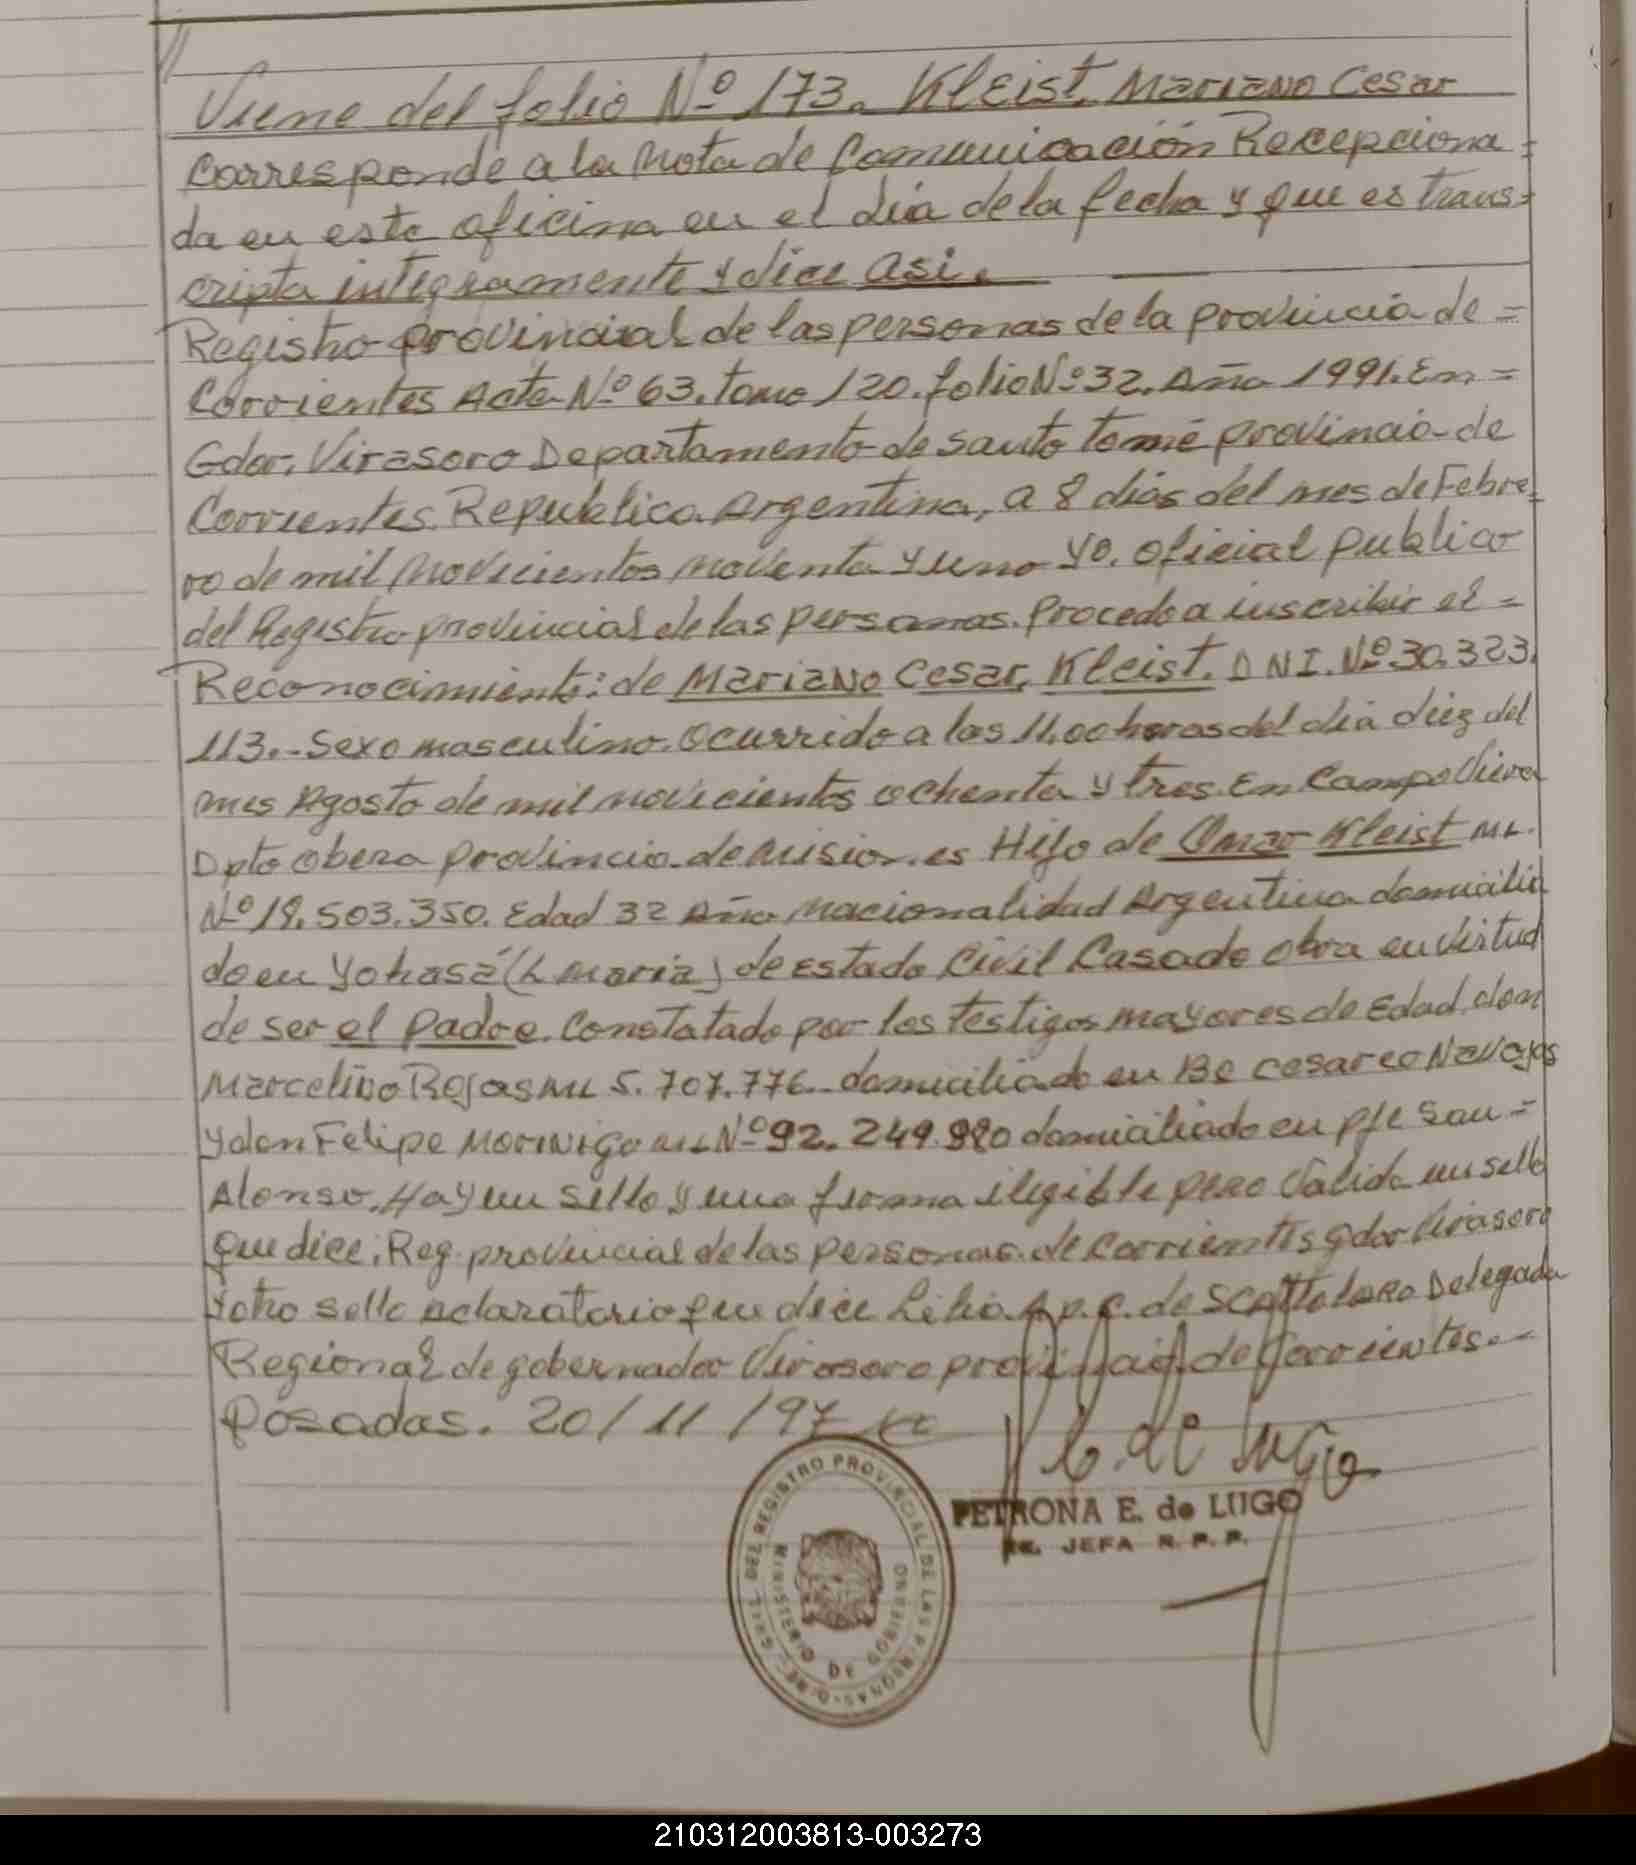 Viene del folio Nº 173. Kleist. Mariano Cesar
Corresponde a la Nota de Comunicación Recepciona=
da en esta oficina en el dia de la fecha y que es trans=
cripta integramente y dice Asi.
Registro provincial de las personas de la provincia de =
Corrientes Acta Nº 63. tomo 120. folio Nº 32. Año 1991. En =
Gdor. Virasoro Departamento de Santo tomé provincia de
Corrientes. Republica Argentina, a 8 dias del mes de Febre=
ro de mil Novecientos Noventa y uno yo. Oficial Publico
del Registro provincial de las personas. Procedo a inscribir el =
Reconocimiento: de Mariano Cesar, Kleist. D N I. Nº 30.323.
113.- Sexo masculino. Ocurrido a las 11.00 horas del dia diez del
mes Agosto de mil novecientos ochenta y tres. En Campo Viera
Dpto Obera provincia de Mision.es Hijo de Omar Kleist ML.
Nº 18.503.350. Edad 32 Año Nacionalidad Argentina domicilia
do en Yohasá (L Maria) de Estado Civil Casado obra en virtud
de ser el Padre. Constatado por los testigos mayores de Edad. don
Marcelino Rojas ML 5.707.776 domiciliado en Bº Cesareo Navajas
y don Felipe Morinigo ML Nº 92.249.980 domiciliado en Pje San =
Alonso. Hay un sello y una firma ilegible pero Valida un sello
que dice: Reg. provincial de las personas. de Corrientes gdor Virasoro
y otro sello aclaratorio que dice Lilia A p. C. de Delegada
Regional de gobernador Virasoro provincia de Corrientes.-
Posadas. 20/11/97
PETRONA E. de LUGO
JEFA R. P. P.
GRAL. DEL REGISTRO PROVINCIAL DE LAS PERSONAS
MINISTERIO DE GOBIERNO
210312003813-003273